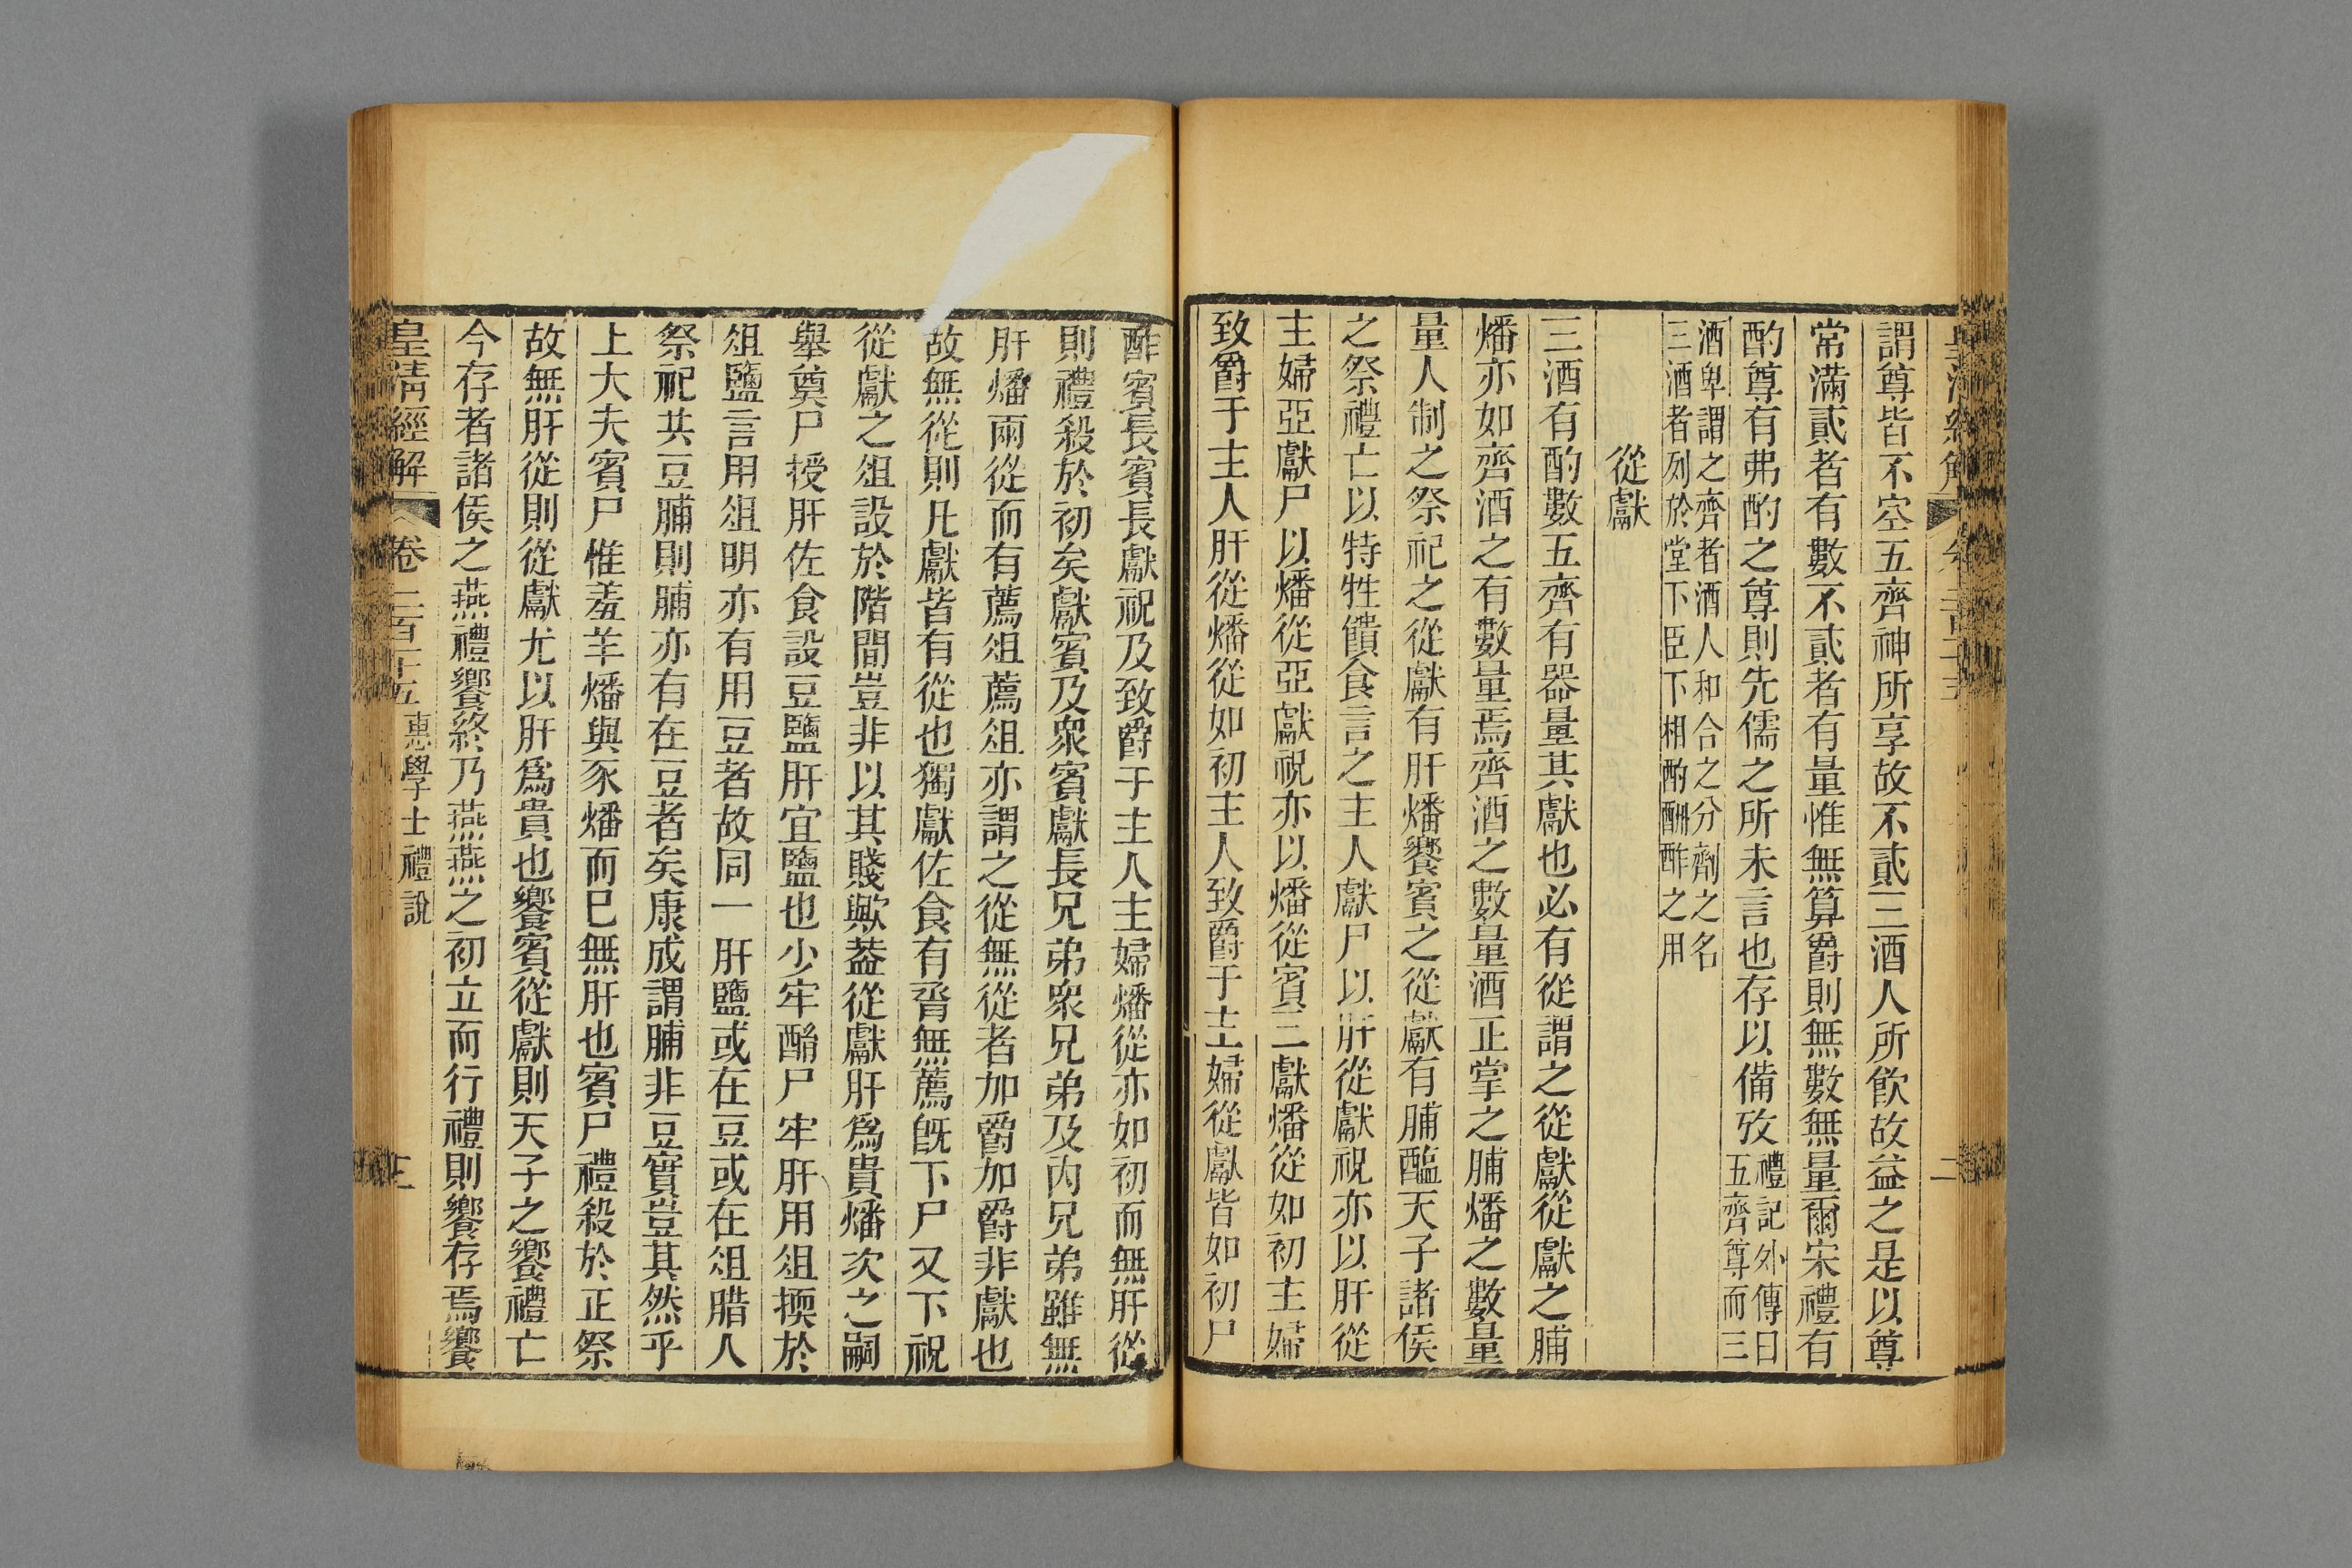 謂尊皆不空五齊神所享故不貳三酒人所飮故益之是以尊
常滿貳者有數不貳者有量惟無算爵則無數無量爾宋禮有
酌尊有弗酌之尊則先儒之所未言也存以備攷禮記外傳曰五齊尊而三
酒卑謂之齊者酒人和合之分劑之名
三酒者列於堂下臣下相酌酬酢之用
從獻
三酒有酌數五齊有器量其獻也必有從謂之從獻從獻之脯
燔亦如齊酒之有數量焉齊酒之數量酒正掌之脯燔之數量
量人制之祭祀之從獻有肝燔饗賓之從獻有脯醢天子諸侯
之祭禮亡以特牲饋食言之主人獻尸以肝從獻祝亦以肝從
主婦亞獻尸以燔從亞獻祝亦以燔從賓三獻燔從如初主婦
致爵于主人肝從燔從如初主人致爵于主婦從獻皆如初尸
酢賓長賓長獻祝及致爵于主人主婦燔從亦如初而無肝從
則禮殺於初矣獻賓及衆賓獻長兄弟衆兄弟及內兄弟雖無
肝燔兩從而有薦俎薦俎亦謂之從無從者加爵加爵非獻也
故無從則凡獻皆有從也獨獻佐食有胥無薦旣下尸又下祝
從獻之俎設於階間豈非以其賤歟葢從獻肝爲貴燔次之嗣
舉奠尸授肝佐食設豆鹽肝宜鹽也少牢酳尸牢肝用俎擩於
俎鹽言用俎明亦有用豆者故同一肝鹽或在豆或在俎腊人
祭祀共豆脯則脯亦有在豆者矣康成謂脯非豆實豈其然乎
上大夫賓尸惟羞羊燔與豕燔而巳無肝也賓尸禮殺於正祭
故無肝從則從獻尤以肝爲貴也饗賓從獻則天子之饗禮亡
今存者諸侯之燕禮饗終乃燕燕之初立而行禮則饗存焉饗
皇清經解 卷二百二十五 惠學士禮說 三